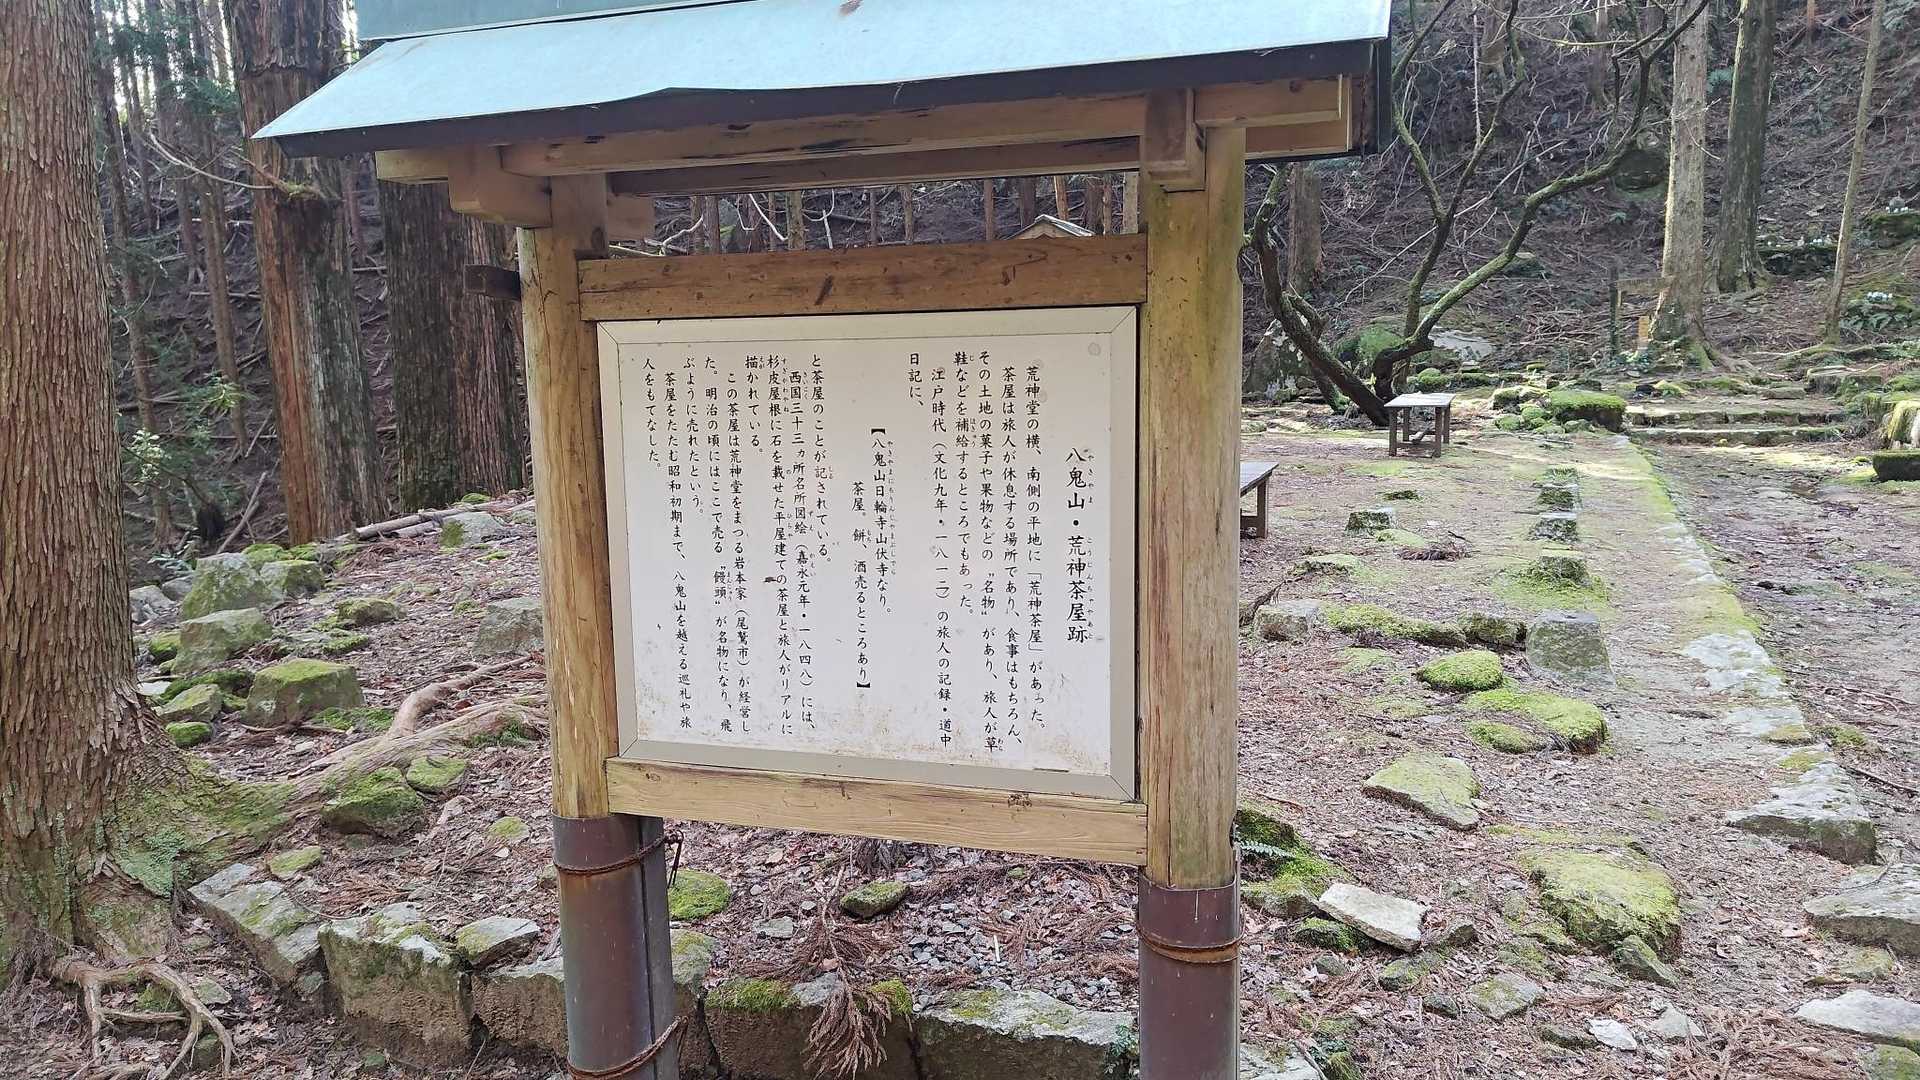 八鬼山・荒神茶屋跡
荒神堂の横、南側の平地に「荒神茶屋」があった。
茶屋は旅人が休息する場所であり、食事はもちろん、
その土地の菓子や果物などの〝名物〟があり、旅人が草
鞋などを補給するところでもあった。
江戸時代（文化九年・一八一二）の旅人の記録・道中
日記に、
【八鬼山日輪寺山伏寺なり。
茶屋。餅、酒売るところあり】
と茶屋のことが記されている。
西国三十三ヵ所名所図絵（嘉永元年・一八四八）には、
杉皮屋根に石を載せた平屋建ての茶屋と旅人がリアルに
描かれている。
この茶屋は荒神堂をまつる岩本家（尾鷲市）が経営し
た。明治の頃にはここで売る〝饅頭〟が名物になり、飛
ぶように売れたという。
茶屋をたたむ昭和初期まで、八鬼山を越える巡礼や旅
人をもてなした。